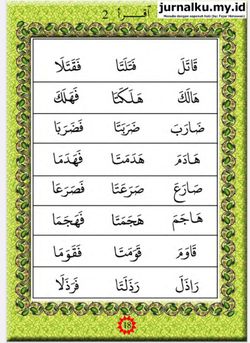 jurnalku.my.id
اقرأ 2
قَاتَلَ قَتَلَتَا فَقَتَلَا
هَالَكَ هَلَكَتَا فَهَلَكَ
ضَارَبَ ضَرَبَتَا فَضَرَبَا
هَادَمَ هَدَمَتَا فَهَدَمَا
صَارَعَ صَرَعَتَا فَصَرَعَا
هَاجَمَ هَجَمَتَا فَهَجَمَا
قَاوَمَ قَوَمَتَا فَقَوَمَا
رَاذَلَ رَذَلَتَا فَرَذَلَا
18